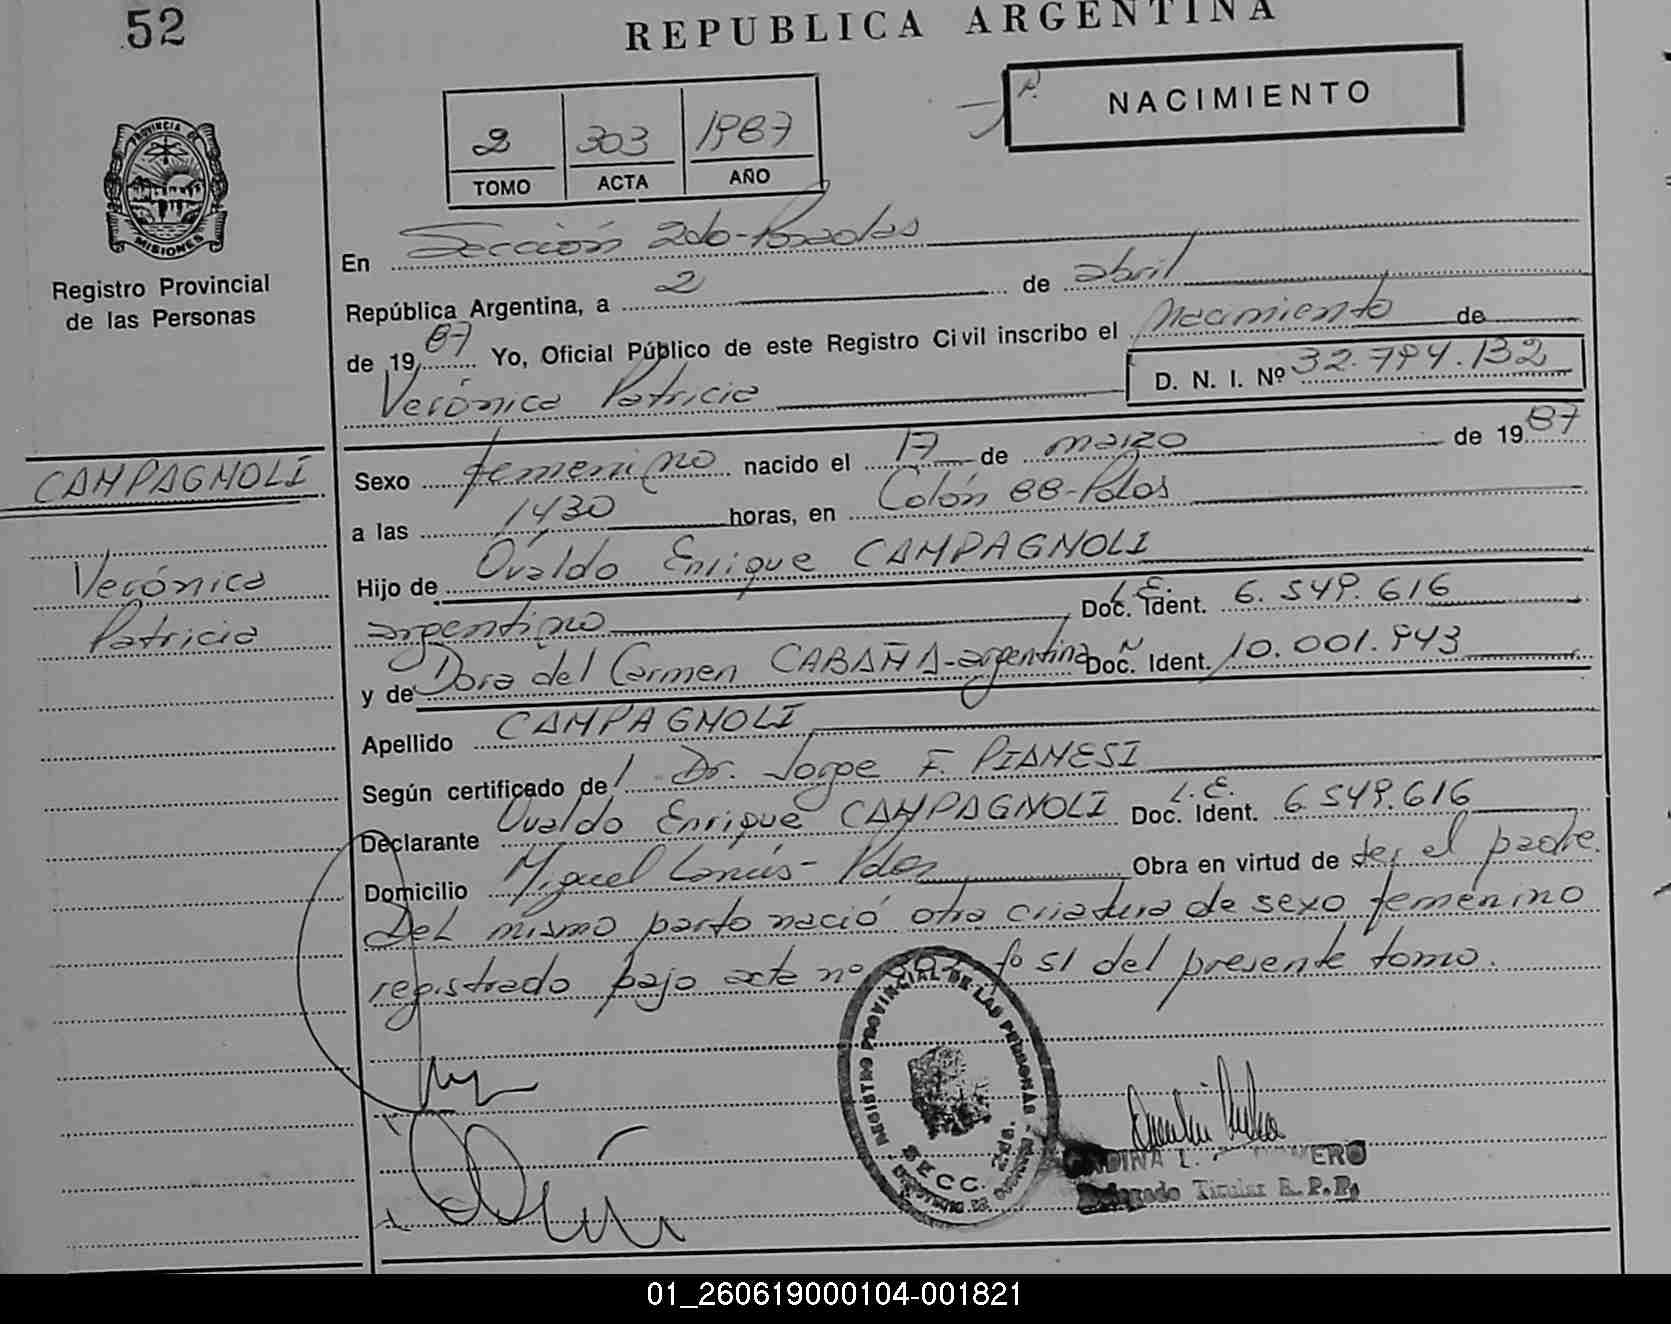 52
REPUBLICA ARGENTINA
NACIMIENTO
2 303 1987
TOMO ACTA AÑO
PROVINCIA DE
MISIONES
Registro Provincial
de las Personas
En Sección 2da-Posadas
República Argentina, a 2 de abril
de 1987 Yo, Oficial Público de este Registro Civil inscribo el Nacimiento de
Verónica Patricia D. N. I. Nº 32.794.132
CAMPAGNOLI
Verónica
Patricia
Sexo femenino nacido el 17 de marzo de 1987
a las 1430 horas, en Colón 88-Pdas
Hijo de Ovaldo Enrique CAMPAGNOLI
argentino Doc. Ident. L.E. 6.549.616
y de Dora del Carmen CABAÑA-argentina Doc. Ident. 10.001.943
Apellido CAMPAGNOLI
Según certificado de Dr. Jorge F. PIANESI
Declarante Ovaldo Enrique CAMPAGNOLI Doc. Ident. L.E. 6.549.616
Domicilio Miguel Lanús- Pdas Obra en virtud de ser el padre.
Del mismo parto nació otra criatura de sexo femenino
registrado bajo acta nº fº 51 del presente tomo.
REGISTRO PROVINCIAL DE LAS PERSONAS
SECC. 2da.
Titular R.P.P.
01_260619000104-001821